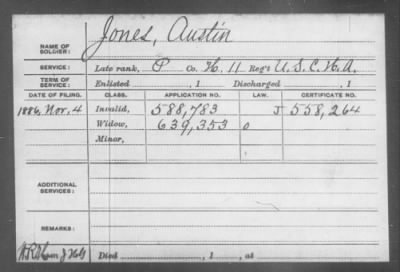 NAME OF SOLDIER: Jones, Austin
SERVICE: Late rank, P Co. H. 11 Reg't U.S.C.H.A.
TERM OF SERVICE: Enlisted , 1 Discharged , 1
DATE OF FILING. CLASS. APPLICATION NO. LAW. CERTIFICATE NO.
1886, Nov. 4 Invalid, 588,783 J 558,264
Widow, 639,353 0
Minor,
ADDITIONAL SERVICES:
REMARKS:
Died , 1 , at